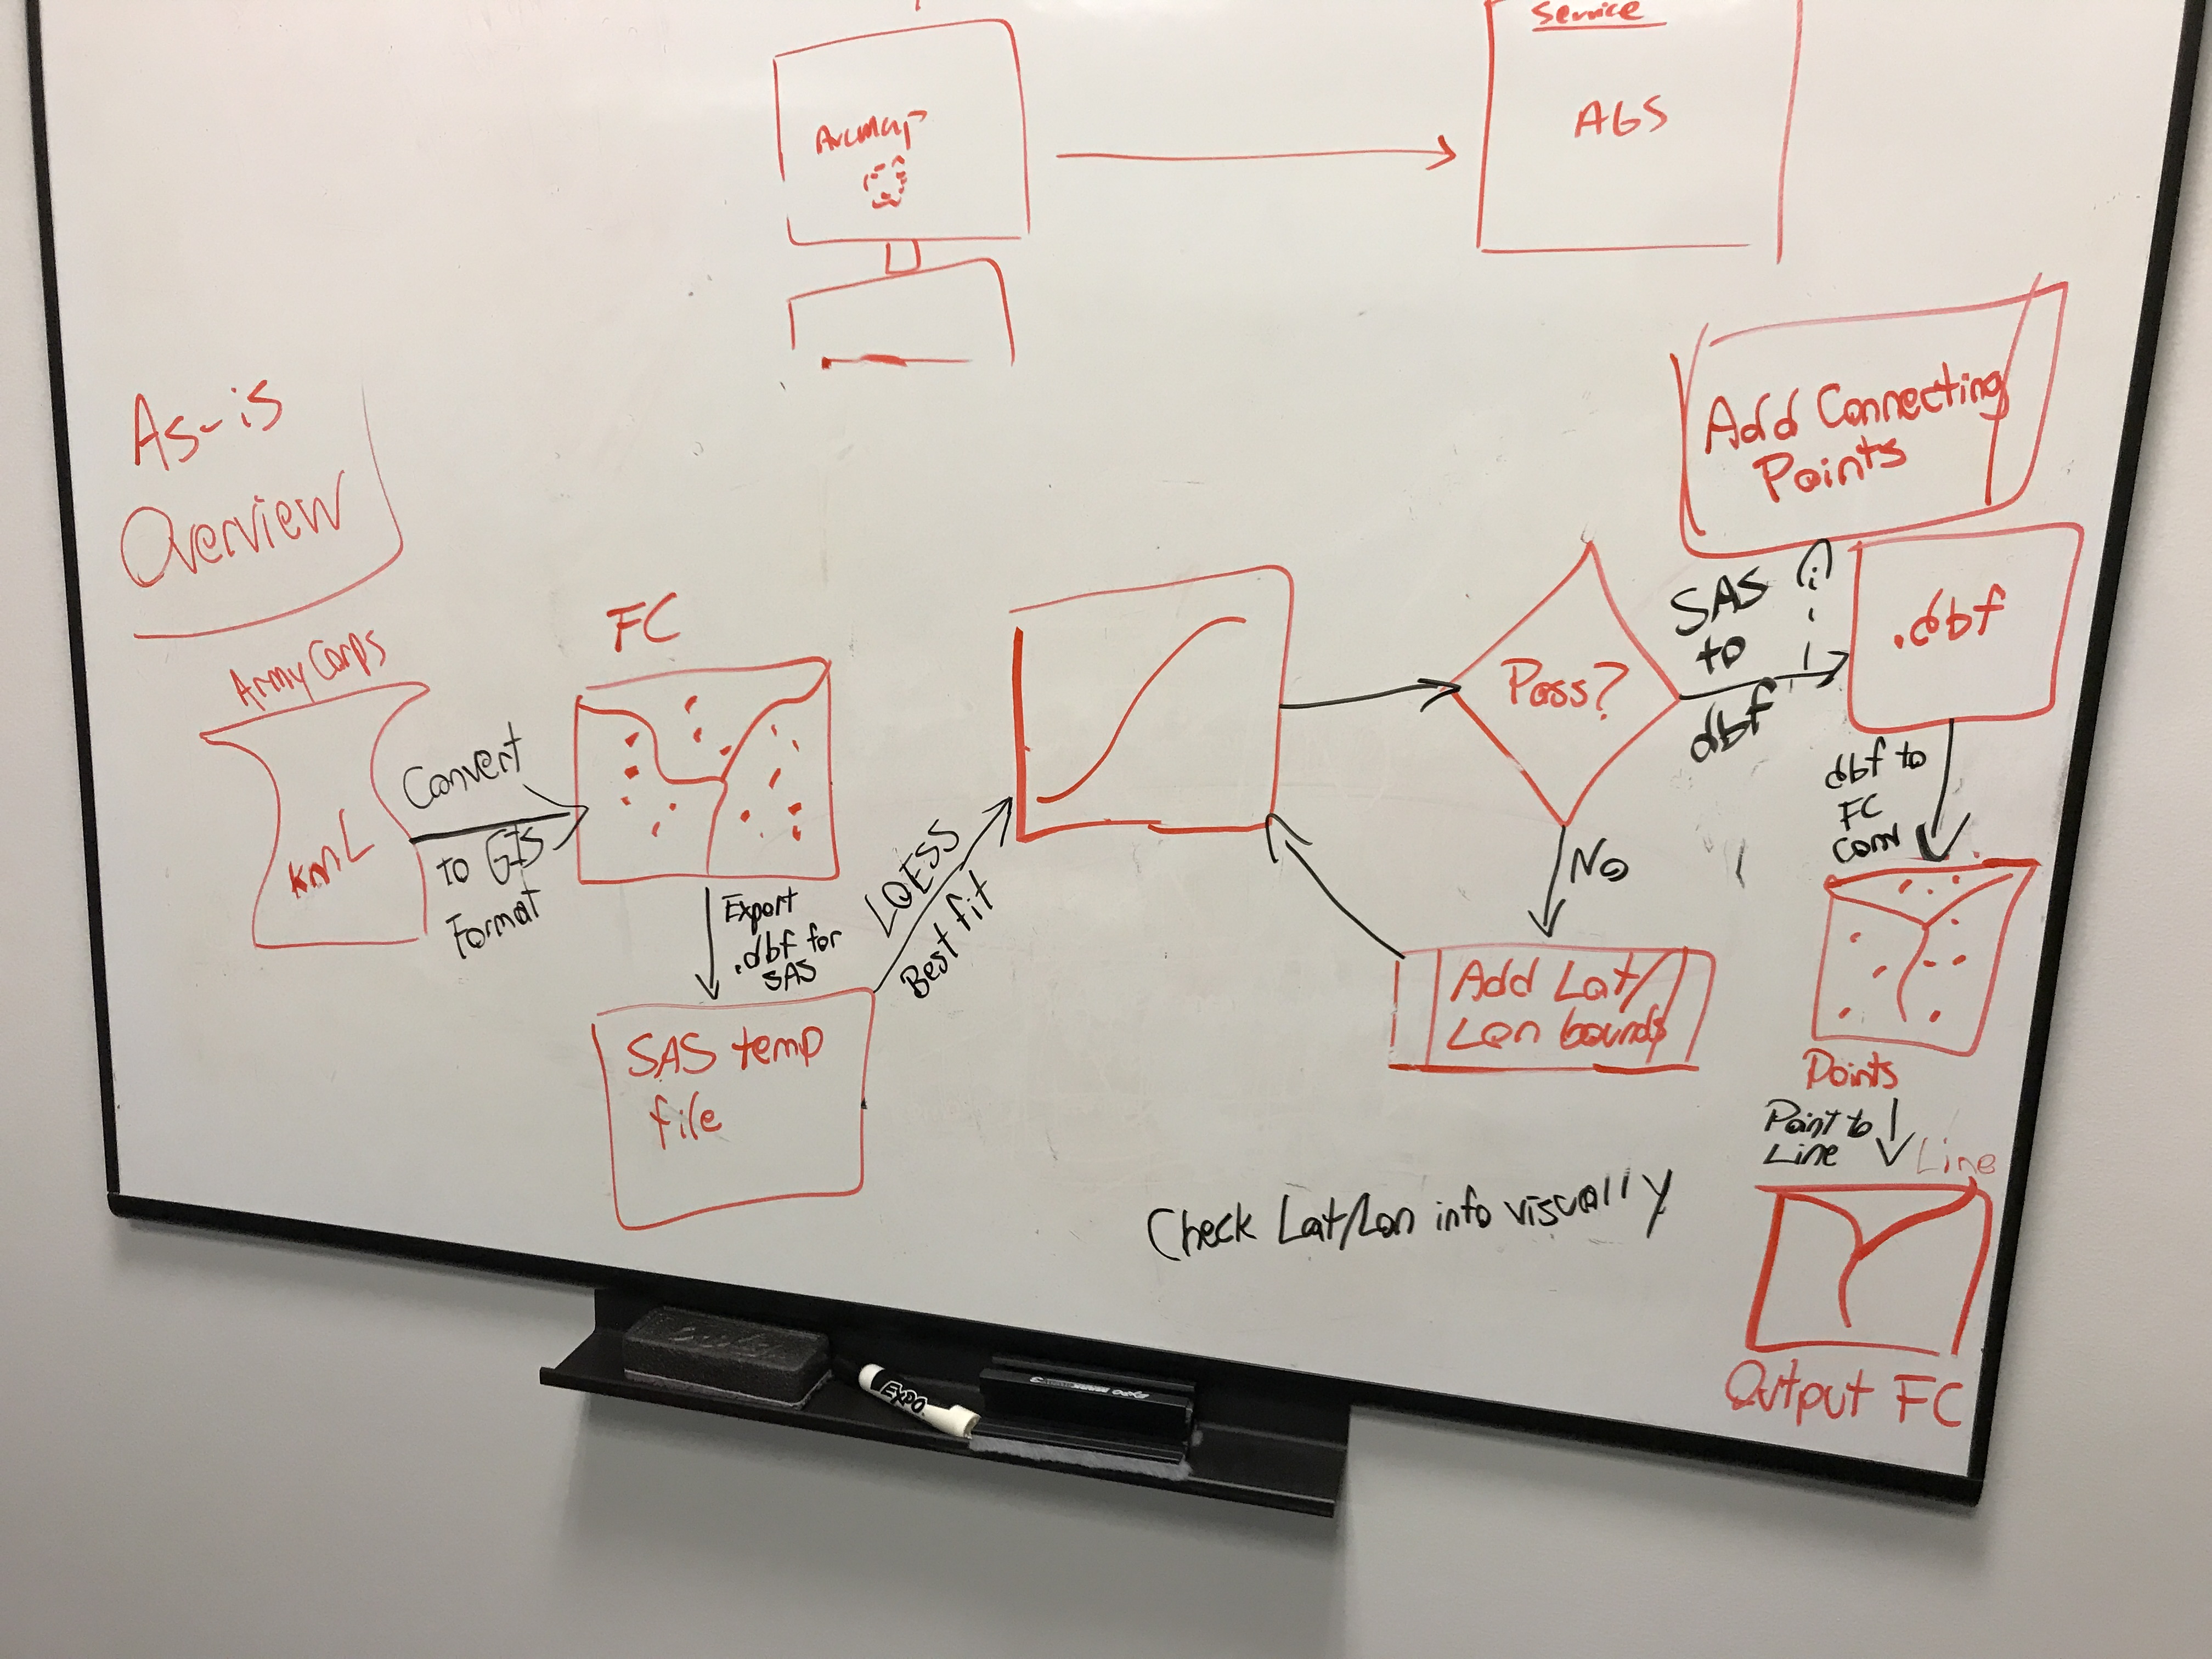 Service
ArcMap
AGS
As-is
Overview
Add Connecting
Points
Army Corps
kmL
Convert
to GIS
Format
FC
Export
.dbf for
SAS
SAS temp
file
LOESS
Best fit
Pass?
No
Add Lat/
Lon bounds
SAS
to
dbf
.dbf
dbf to
FC
conv
Points
Point to
Line
Line
Output FC
Check Lat/Lon info visually
EXPO